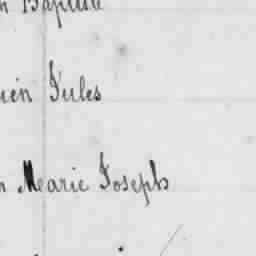 Baptiste
Jules
Marie Joseph